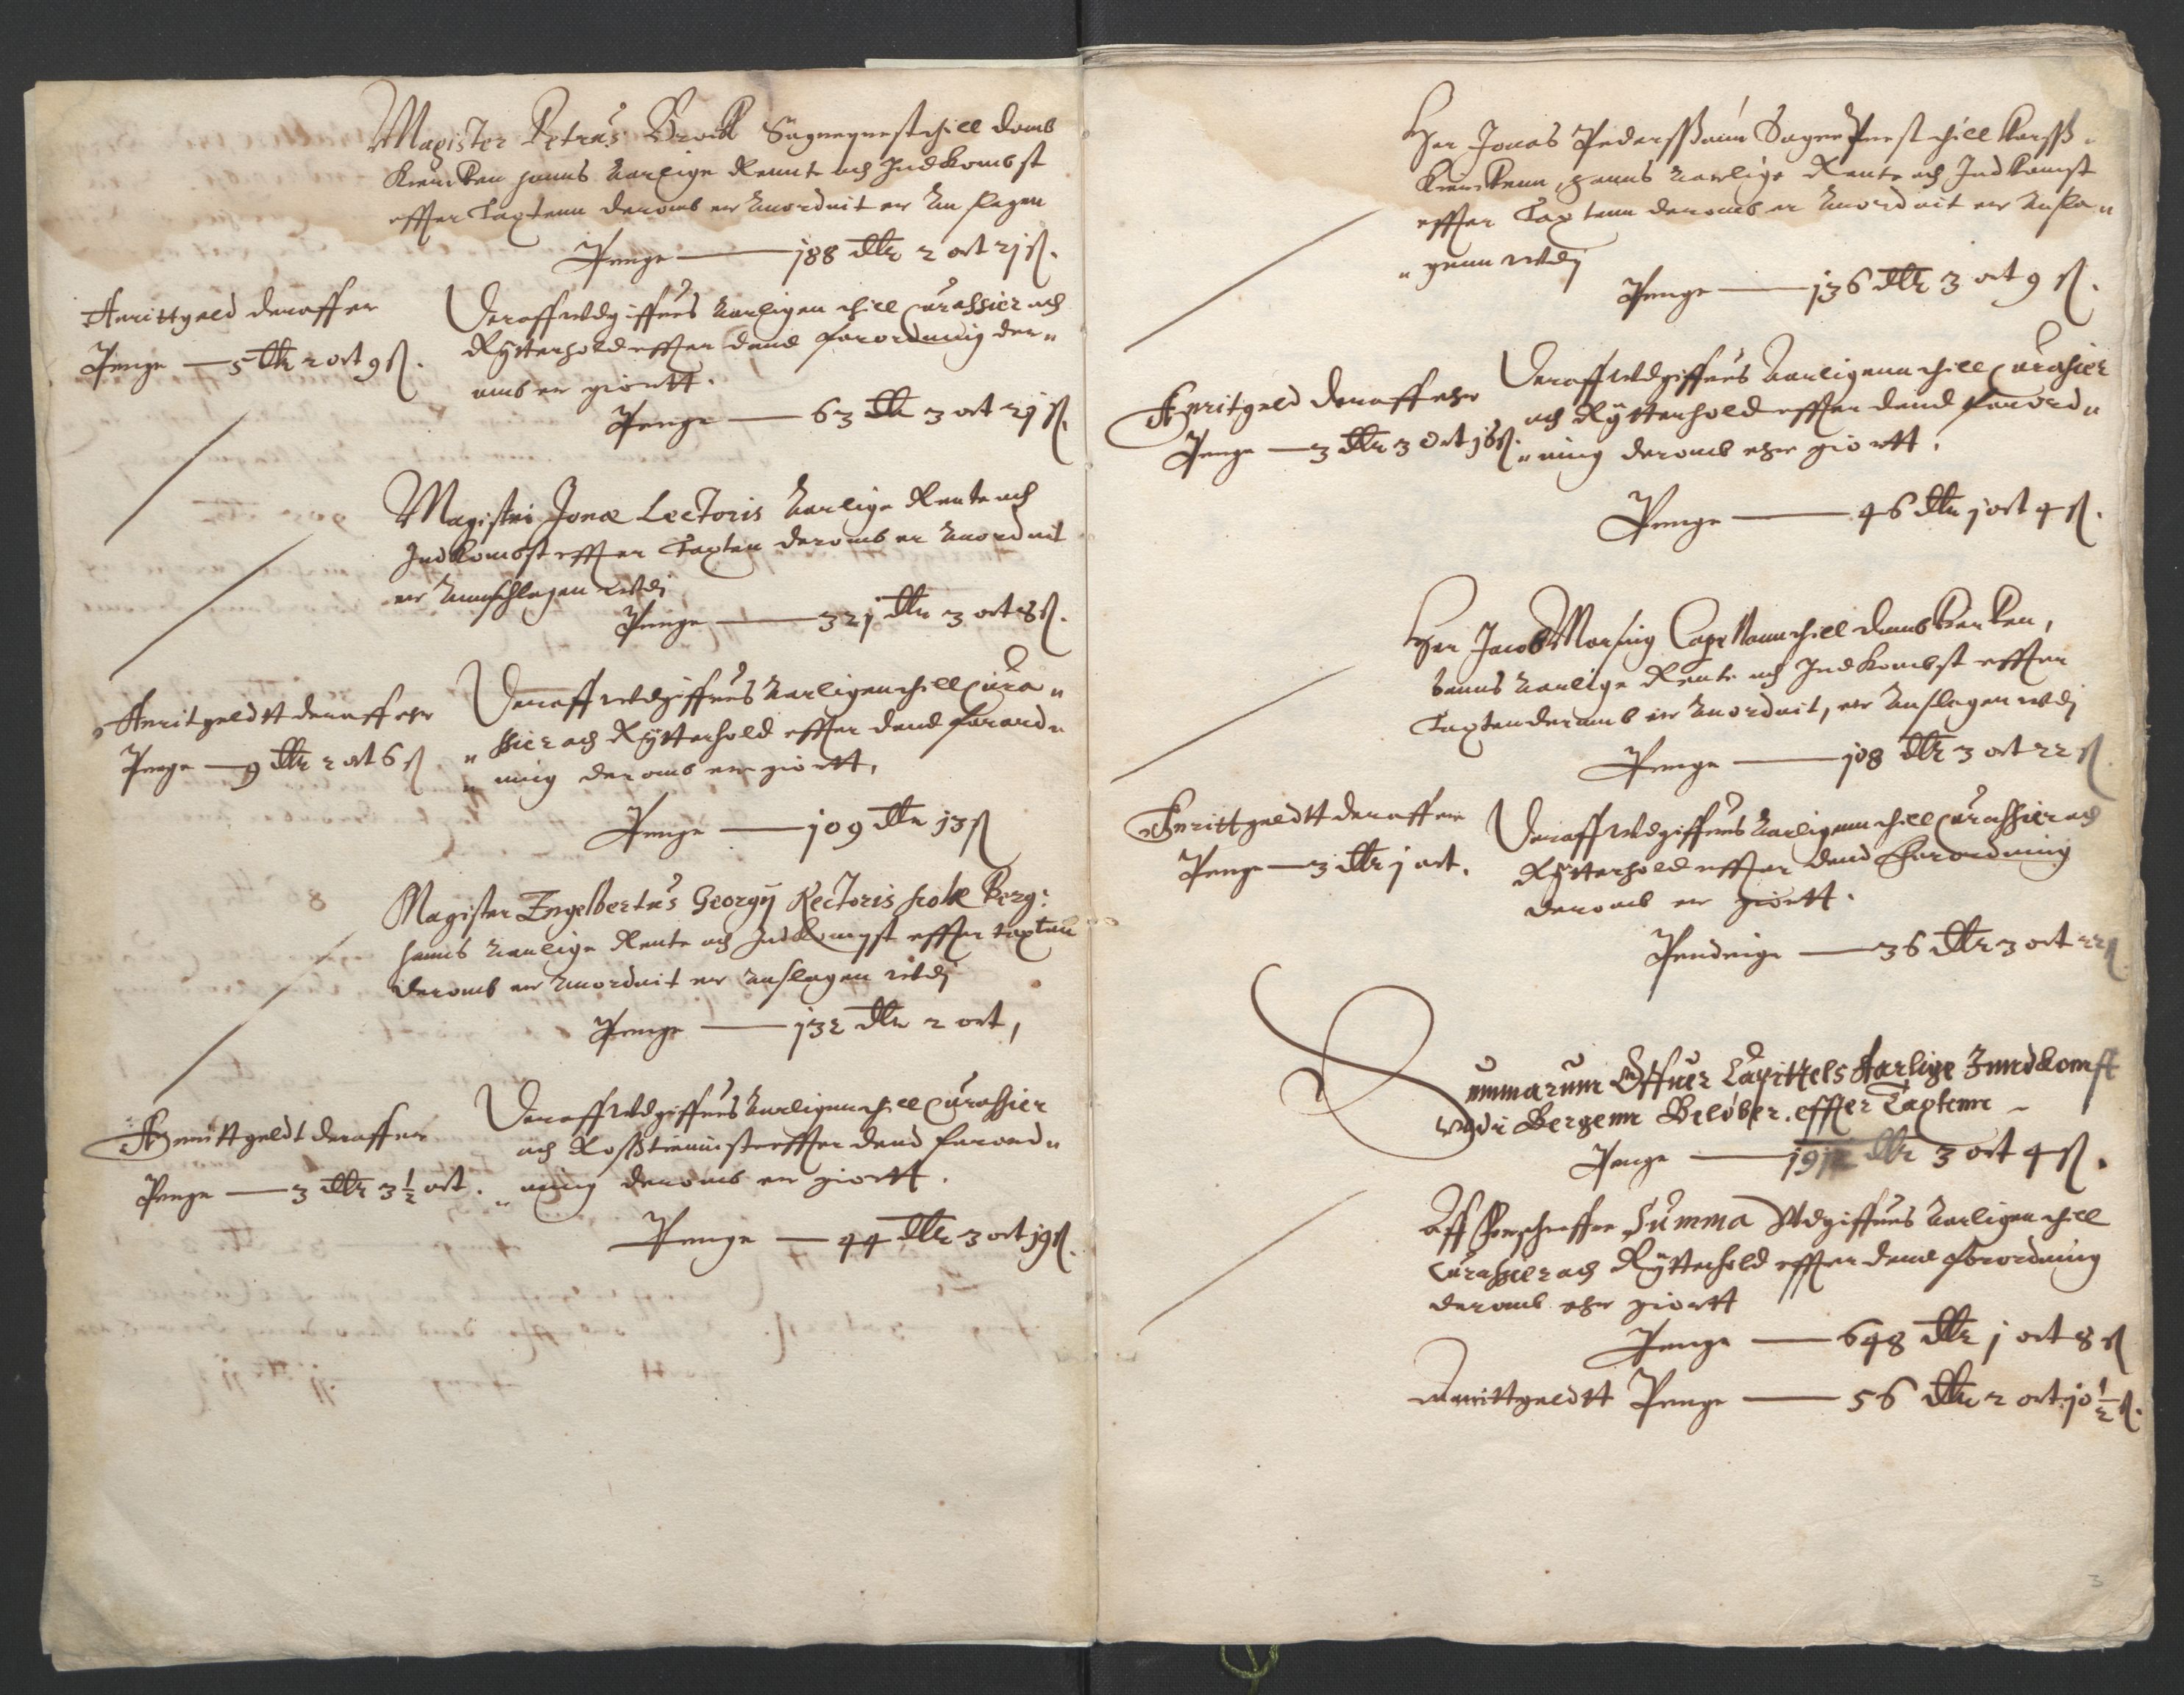 Magister Petrus Brock Sogneprest thill domb
Kiercken hanns Aarlige Rennte och Indkombst
effter Taxtenn deromb er Anordnit er Anslagen
Penge — 188 dlr 2 ort 21 ß.
Anrittgeld deraff er
Penge — 5 dlr 2 ort 9 ß.
Deraff udgiffues Aarligen thill Curassier och
Rÿtterhold effter dend forordning der„
omb er giortt.
Penge — 63 dlr 3 ort 21 ß.
Magistri Jonæ Lectoris Aarlige Rente och
Indkombst effter Taxten deromb er Anordnit
er Annschlagen udi
Penge — 321 dlr 3 ort 8 ß.
Anritgeldtt deraff ehr
Penge — 9 dlr 2 ort 6 ß
Deraff udgiffues Aarligen thill Cura„
„ssier och Rÿtterhold effter dend forord„
„ning deromb er giortt,
Penge — 109 dlr 13 ß
Magister Engelbertus Georgij Rectoris scholæ Berg:
hanns Aarlige Rente och Indkompst effter taxten
deromb er Anordnit er Anslagen udj
Penge — 132 dlr 2 ort,
Anrittgeldt deraff er
Penge — 3 dlr 3 1/2 ort.
Deraff udgiffues Aarligen thill Curassier
och Roßtienniste effter dend forord„
„ning deromb er giortt.
Penge — 44 dlr 3 ort 19 ß.
Her Jonas Pederssßønn Sogne Prest thill Karsß„
Kierckenn, hanns Aarlige Rente och Indkomst
effter Taxtenn deromb er Anordnit er Ansla„
„genn udj
Penge — 136 dlr 3 ort 9 ß.
Anritgeld deraff ehr
Penge — 3 dlr 3 Ort 18 ß.
Deraff udgiffues Aarligenn thill Curasier
och Rÿtterhold effter dend forord„
„ning deromb ehr giortt.
Penge — 46 dlr 1 ort 4 ß.
Her Jacob Morsing Capellann thill dombkiercken,
hanns Aarlige Rente och Indkombst effter
Taxten deromb er Anordnit, er Anslagen udj
Penge — 108 dlr 3 ort 22 ß
Anrittgeldtt deraff er
Penge — 3 dlr 1 ort.
Deraff udgiffues Aarligenn thill Curassier och
Rÿtterhold effter dend Forordning
deromb er giortt.
Pendinge — 36 dlr 3 ort 22 ß
Summarum Offuer Capittels Aarlige Inndkomst
udi Bergenn Beløber effter Taxtenn
Penge — 1912 dlr 3 ort 4 ß.
Aff forschreffne Summa Udgiffues Aarligen thill
Curassier och Rÿtterhold effter dend forordning
deromb ehr giortt
Penge — 648 dlr 1 ort 8 ß
Anrittgeldtt Penge — 56 dlr 2 ort 10 1/2 ß.
3